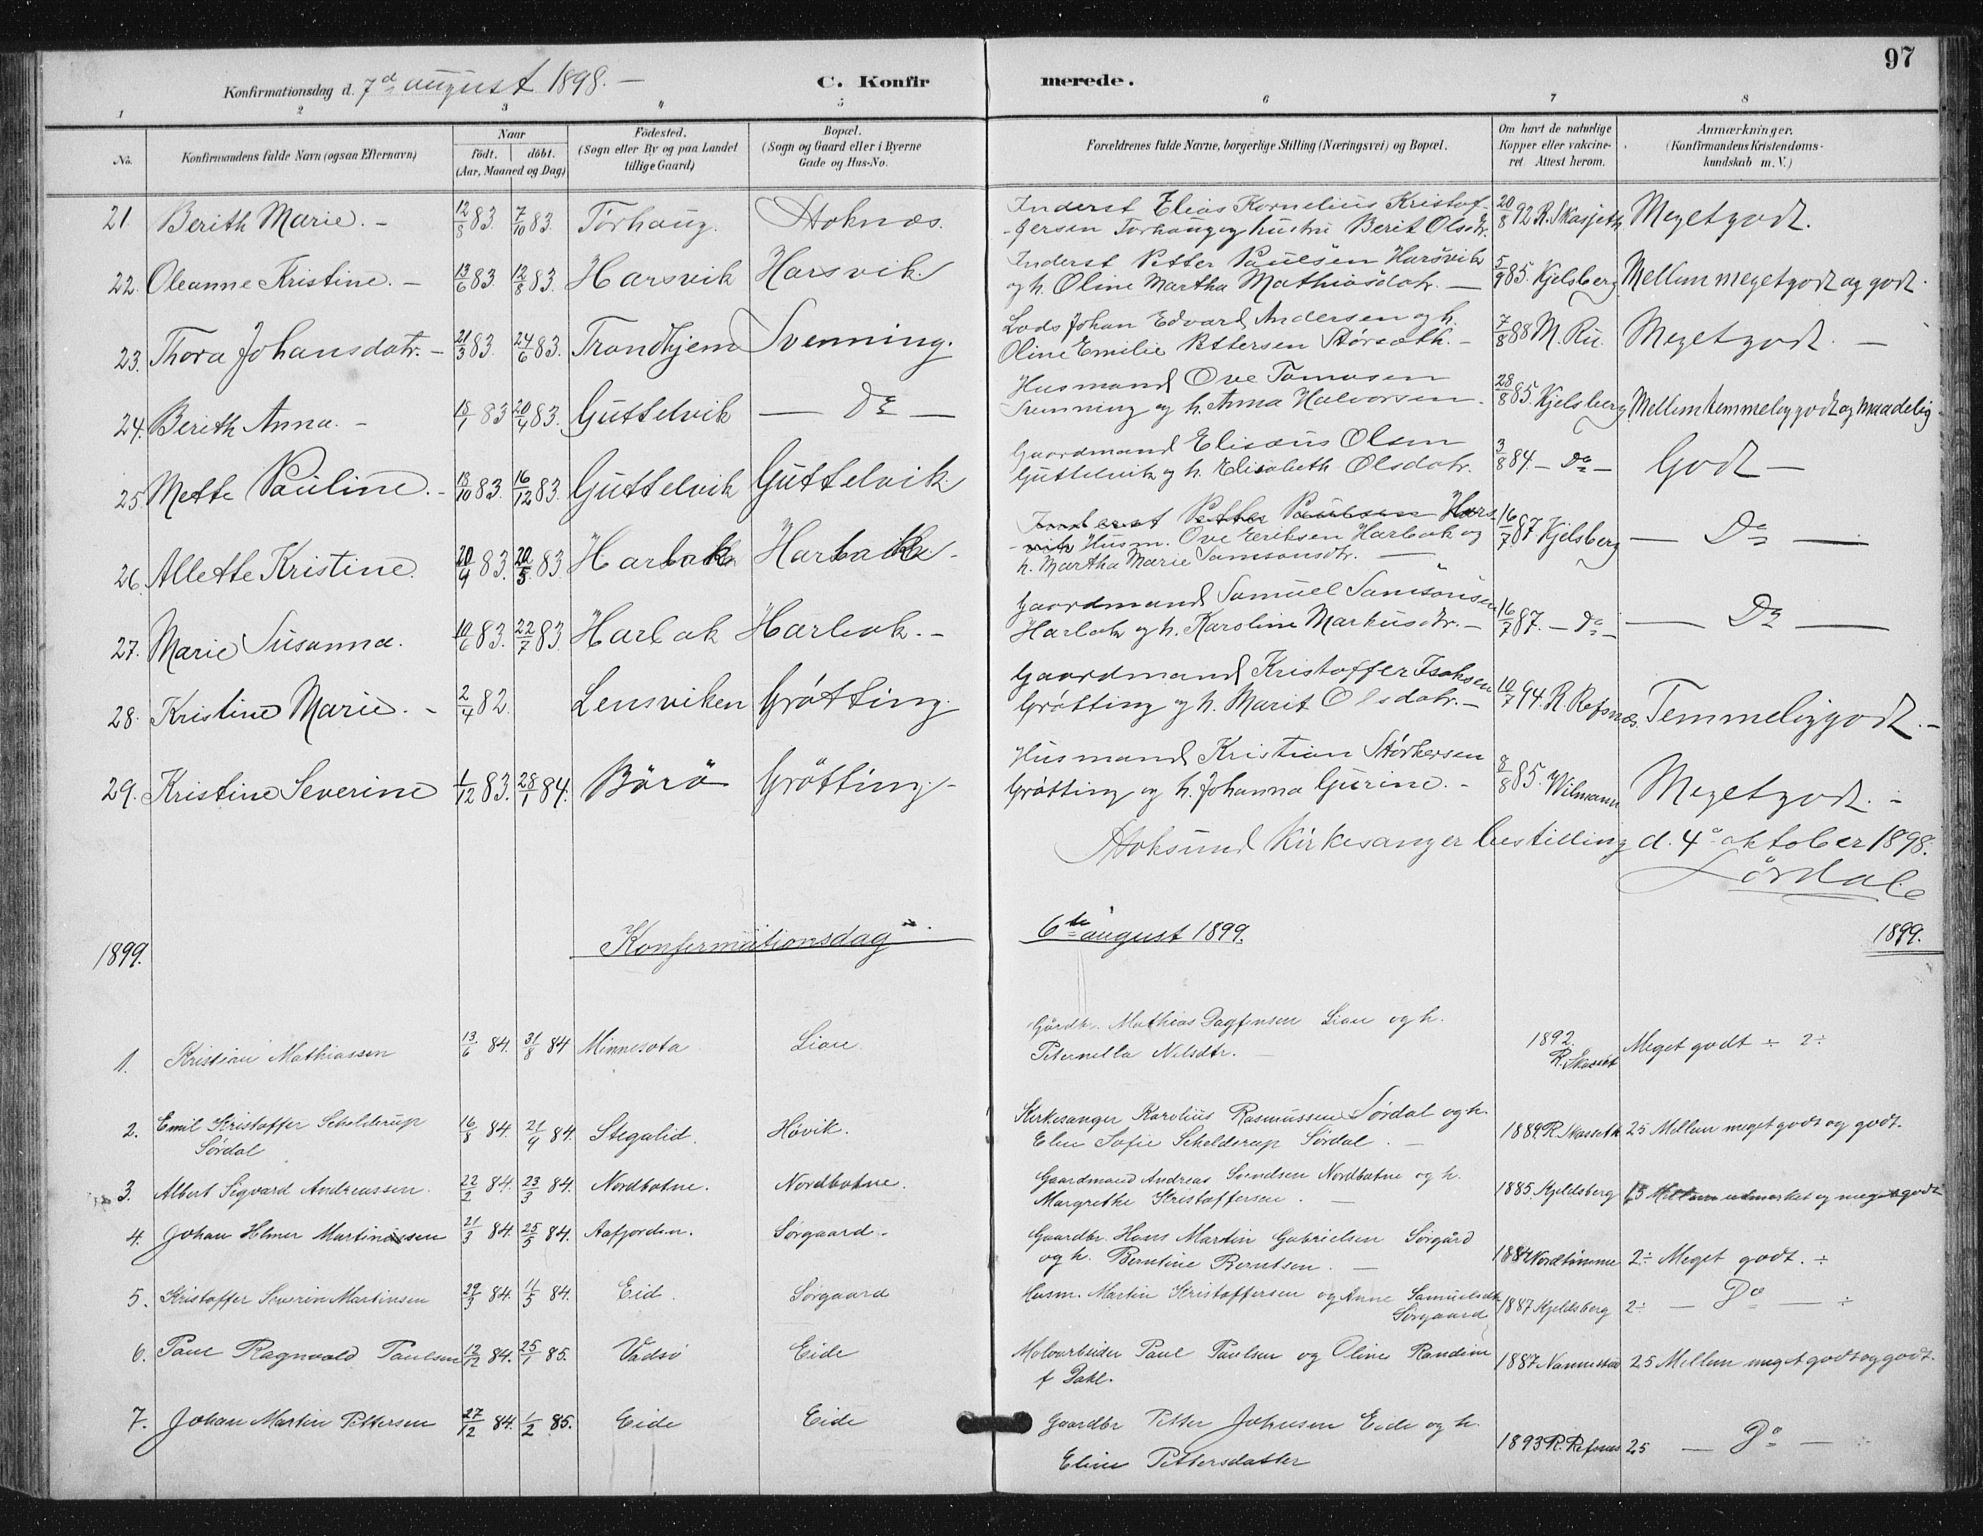 97
Konfirmationsdag d. 7d august 1898. –
C. Konfirmerede.
1 2 3 4 5 6 7 8
No. Konfirmandens fulde Navn (ogsaa Efternavn) Naar födt. döbt. (Aar, Maaned og Dag) Födested. (Sogn eller By og paa Landet tillige Gaard) Bopæl. (Sogn og Gaard eller i Byerne Gade og Hus-No. Forældrenes fulde Navne, borgerlige Stilling (Næringsvei) og Bopæl. Om havt de naturlige Kopper eller vakcineret. Attest herom. Anmærkninger. (Konfirmandens Kristendomskundskab m. V.)
21. Berith Marie. – 12/8 83. 7/10 83. Törhaug. Stoknæs. Inderst Elias Kornelius Kristof-
fersen Torhaug og hustru Berit Olsdtr. 20/8 92 R. Skasjeth Megetgodt.
22. Oleanne Kristine. – 13/6 83. 12/8 83. Harsvik Harsvik. Inderst Petter Paulsen Harsvik
og h. Oline Martha Mathiasdatr. – 5/9 85. Kjelsberg. Mellem megetgodt og godt.
23. Thora Johansdatr. – 21/3 83. 24/6 83. Trondhjem Svenning. Lods Johan Edvard Andersen og h.
Oline Emilie Pettersen Störsæth. – 7/8 88 M. Ru. Megetgodt. –
24. Berith Anna. – 18/1 83 20/4 83. Guttelvik — Do — Husmand Ove Tomasen
Svenning og h. Anna Halvorsen. 28/8 85. Kjelsberg Mellem temmeliggodt og maadelig
25. Mette Pauline. – 18/10 83. 16/12 83. Guttelvik Guttelvik. Gaardmand Elisæus Olsen
Guttelvik og h. Elisabeth Olsdatr. 3/8 84. – Do – Godt –
26. Allette Kristine. 20/4 83. 20/5 83. Harbak Harbak – Inderst Petter Paulsen Hars-
vik Husm. Ove Eriksen Harbak og
h. Martha Marie Samsonsdtr. – 16/7 87 Kjelsberg — Do —
27. Marie Susanna. 10/6 83. 22/7 83. Harbak Harbak. – Gaardmand Samuel Samsonsen
Harbak og h. Karoline Markusdtr. – 16/7 87. – Do – — Do —
28. Kristine Marie. – 2/4 82. Lensviken Gröttting. Gaardmand Kristoffer Isaksen
Grøtting og h. Marit Olsdatr. – 10/7 94. R. Refsnæs. Temmeliggodt. –
29. Kristine Severine 1/12 83. 28/1 84. Börö Grötting. – Husmand Kristian Störkersen
Grøtting og h. Johanna Gurine. – 8/8 85. Wilmann Megetgodt. –
Stoksund Kirkesangerbestilling d. 4o oktober 1898.
Sørdal
1899. Konfirmationsdag 6te august 1899. 1899.
1. Kristian Mathiassen 13/6 84. 31/8 84 Minnesota Lian. Gårdbr. Mathias Dagfinsen Lian og h.
Peternella Nilsdtr. – 1892. R. Skasset Meget godt ÷ 2÷
2. Emil Kristoffer Schelderup
Sørdal 16/8 84. 21/9 84. Stegalid. Hövik. Kirkesanger Karolius Rasmussen Sørdal og h.
Elen Sofie Schelderup Sørdal. – 1889 R. Skasseth 25 Mellem meget godt og godt.
3. Albert Sigvard Andreassen. 22/2 84. 23/3 84. Nordbotne. Nordbotne. Gaardmand Andreas Svendsen Nordbotne og h.
Margrethe Kristoffersen. – 1885. Kjeldsberg 1,5 Mellem udmærket og meget godt
4. Johan Elmer Martinussen 21/3 84. 25/5 84. Aafjorden. Sørgaard. Gaardbr. Hans Martin Gabrielsen Sørgård
og h. Berntine Berntsen. – 1884 Nordtømme 2÷ Meget godt. ÷
5. Kristoffer Severin Martinsen 29/3 84. 11/5 84. Eid. Sørgaard Husm. Martin Kristoffersen og Anne Samuelsdtr
Sørgaard 1887 Kjeldsberg 2÷ — Do — ÷
6. Paul Ragnvald Paulsen 12/12 84. 25/1 85. Vadsö Eide Moloarbeider Paul Paulsen og Oline Randine
f Dahl. 1887 Nannestad 25 Mellem meget godt og godt.
7. Johan Martin Pettersen 27/12 84. 1/2 85. Eide Eide Gaardbr Petter Johnsen Eide og h.
Eline Pettersdatter 1893 R. Refsnes 25 — Do —